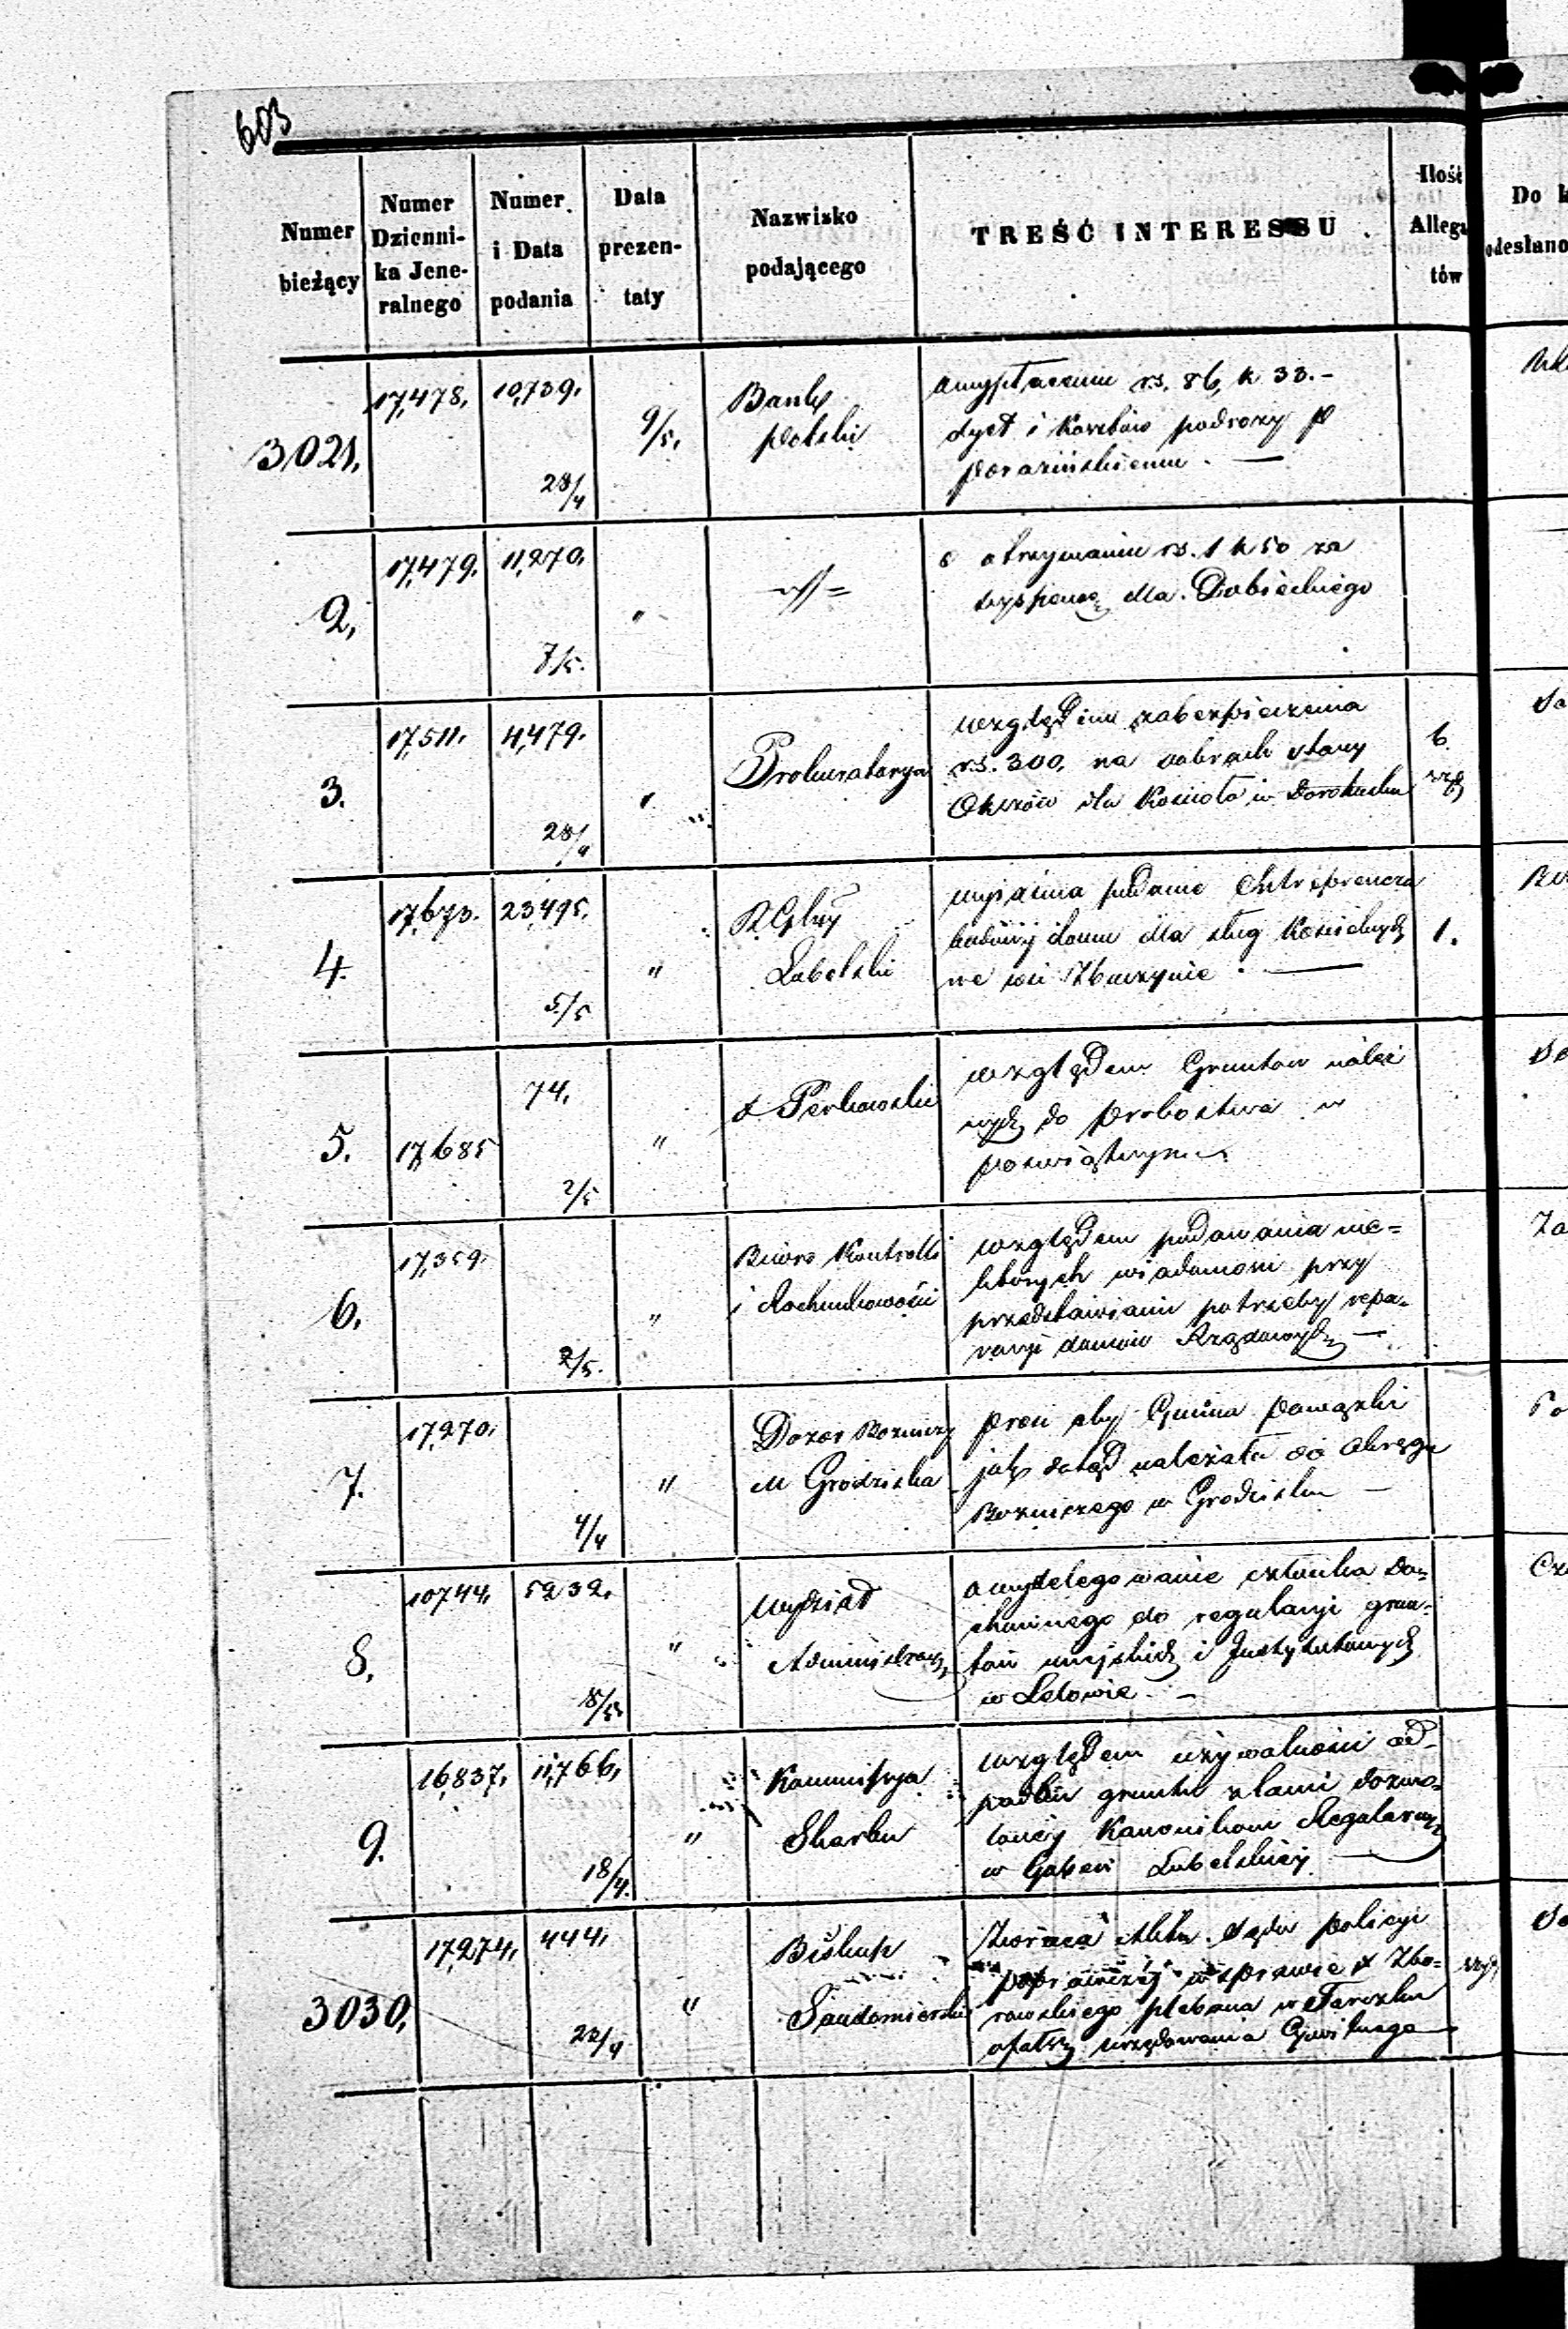 603
Numer bieżący
Numer Dzienni-ka Jene-ralnego
Numer i Data podania
Data prezen-taty
Nazwisko podającego
TREŚĆ INTERESSU
Ilość Allega tów
Do k
odesłano
3021. 17,478. 10,739. 28/4 9/5.
Bank
Polski
o wypłaceniu rs. 86, k 33.-
dyet i kosztów podroży P
Porazińskiemu. —
2. 17,479. 11,270. 7/5. "
o otrzymaniu rs. 1 k 50 za
dla Dobieckiego
3. 17,511. 4,479. 28/4 "
Prokuratorya
względem zabezpieczenia
rs. 300, na dobrach stary
Okszów dla Kościoła w Dorohusku
6.
4. 17,673. 23,495. 5/5 "
R. Gbny
Lubelski
wyjaśnia podanie Entreprenera
budowy domu dla sług Kościelnych
we wsi Zbuczynie. —
1.
5. 17,685 74. 2/5 "
X Perkowski
względem Gruntów należ
nych do probostwa w
Poświątnym
6. 17,359. 2/5. "
Biuro Kontrolli
i Rachunkowości
względem podawania nie=
których wiadomości przy
przedstawianiu potrzeby repa-
racyi domów Rządowych —
7. 17,270. 4/4 "
Dozor Bożniczy
M Grodziska
Prosi aby Gmina Powązki
jak dotąd należała do Okręgu
Bożniczego w Grodzisku —
8. 10744. 5232. 8/5 "
Wydział
Administracyj
o wydelegowanie członka Du=
chownego do regulacyi grun-
tów miejskich i Instytutowych
w Lelowie. —
9. 16,837. 11,766. 18/4. "
Kommissya
Skarbu
względem używalności od-
gruntu z łanu dozwo=
lonéj Kanonikom Regularnym
w Gubern Lubelskiéj —
3030. 17,274. 444. 22/4 "
Biskup
Sandomierski
Zwraca Akta Sądu Policyi
poprawczéj w sprawie X Zbo=
rowskiego plebana w Tarczku
urzędowania Cywilnego